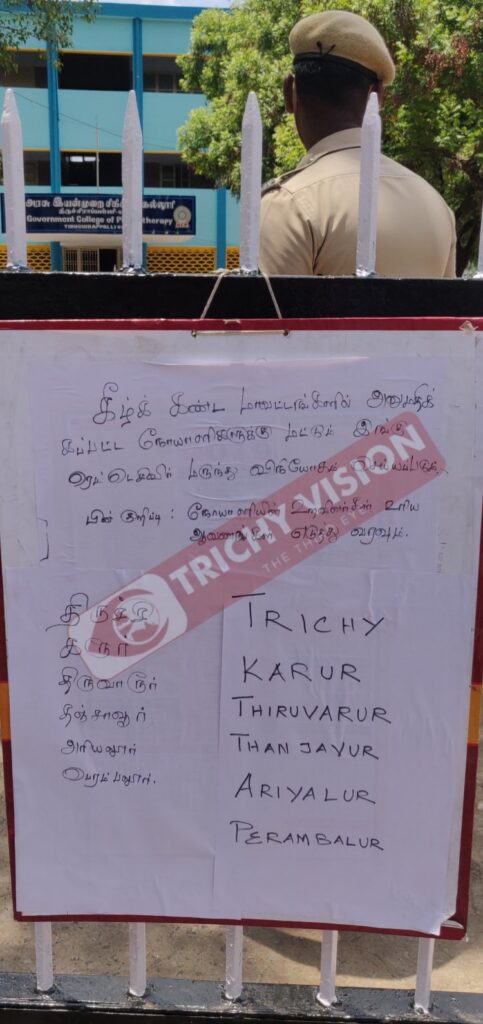 அரசு இயன்முறை சிகிச்சை கல்லூரி
Government College of Physiotherapy
TIRUCHIRAPPALLI
கீழ்க் கண்ட மாவட்டங்களில் அனுமதிக்
கப்பட்ட நோயாளிகளுக்கு மட்டும் இங்கு
ரெம்டெசிவிர் மருந்து விநியோகம் செய்யப்படும்.
பின் குறிப்பு : நோயாளியின் உறவினர்கள் உரிய
ஆவணங்கள் எடுத்து வரவும்.
TRICHY VISION
THE THIRD EYE
திருச்சி
கரூர்
திருவாரூர்
தஞ்சாவூர்
அரியலூர்
பெரம்பலூர்.
TRICHY
KARUR
THIRUVARUR
THANJAVUR
ARIYALUR
PERAMBALUR